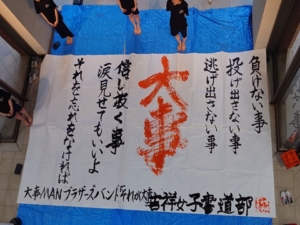 負けない事
投げ出さない事
逃げ出さない事
大事
信じ抜く事
涙見せてもいいよ
それを忘れなければ
大事MANブラザーズバンド「それが大事」
吉祥女子書道部